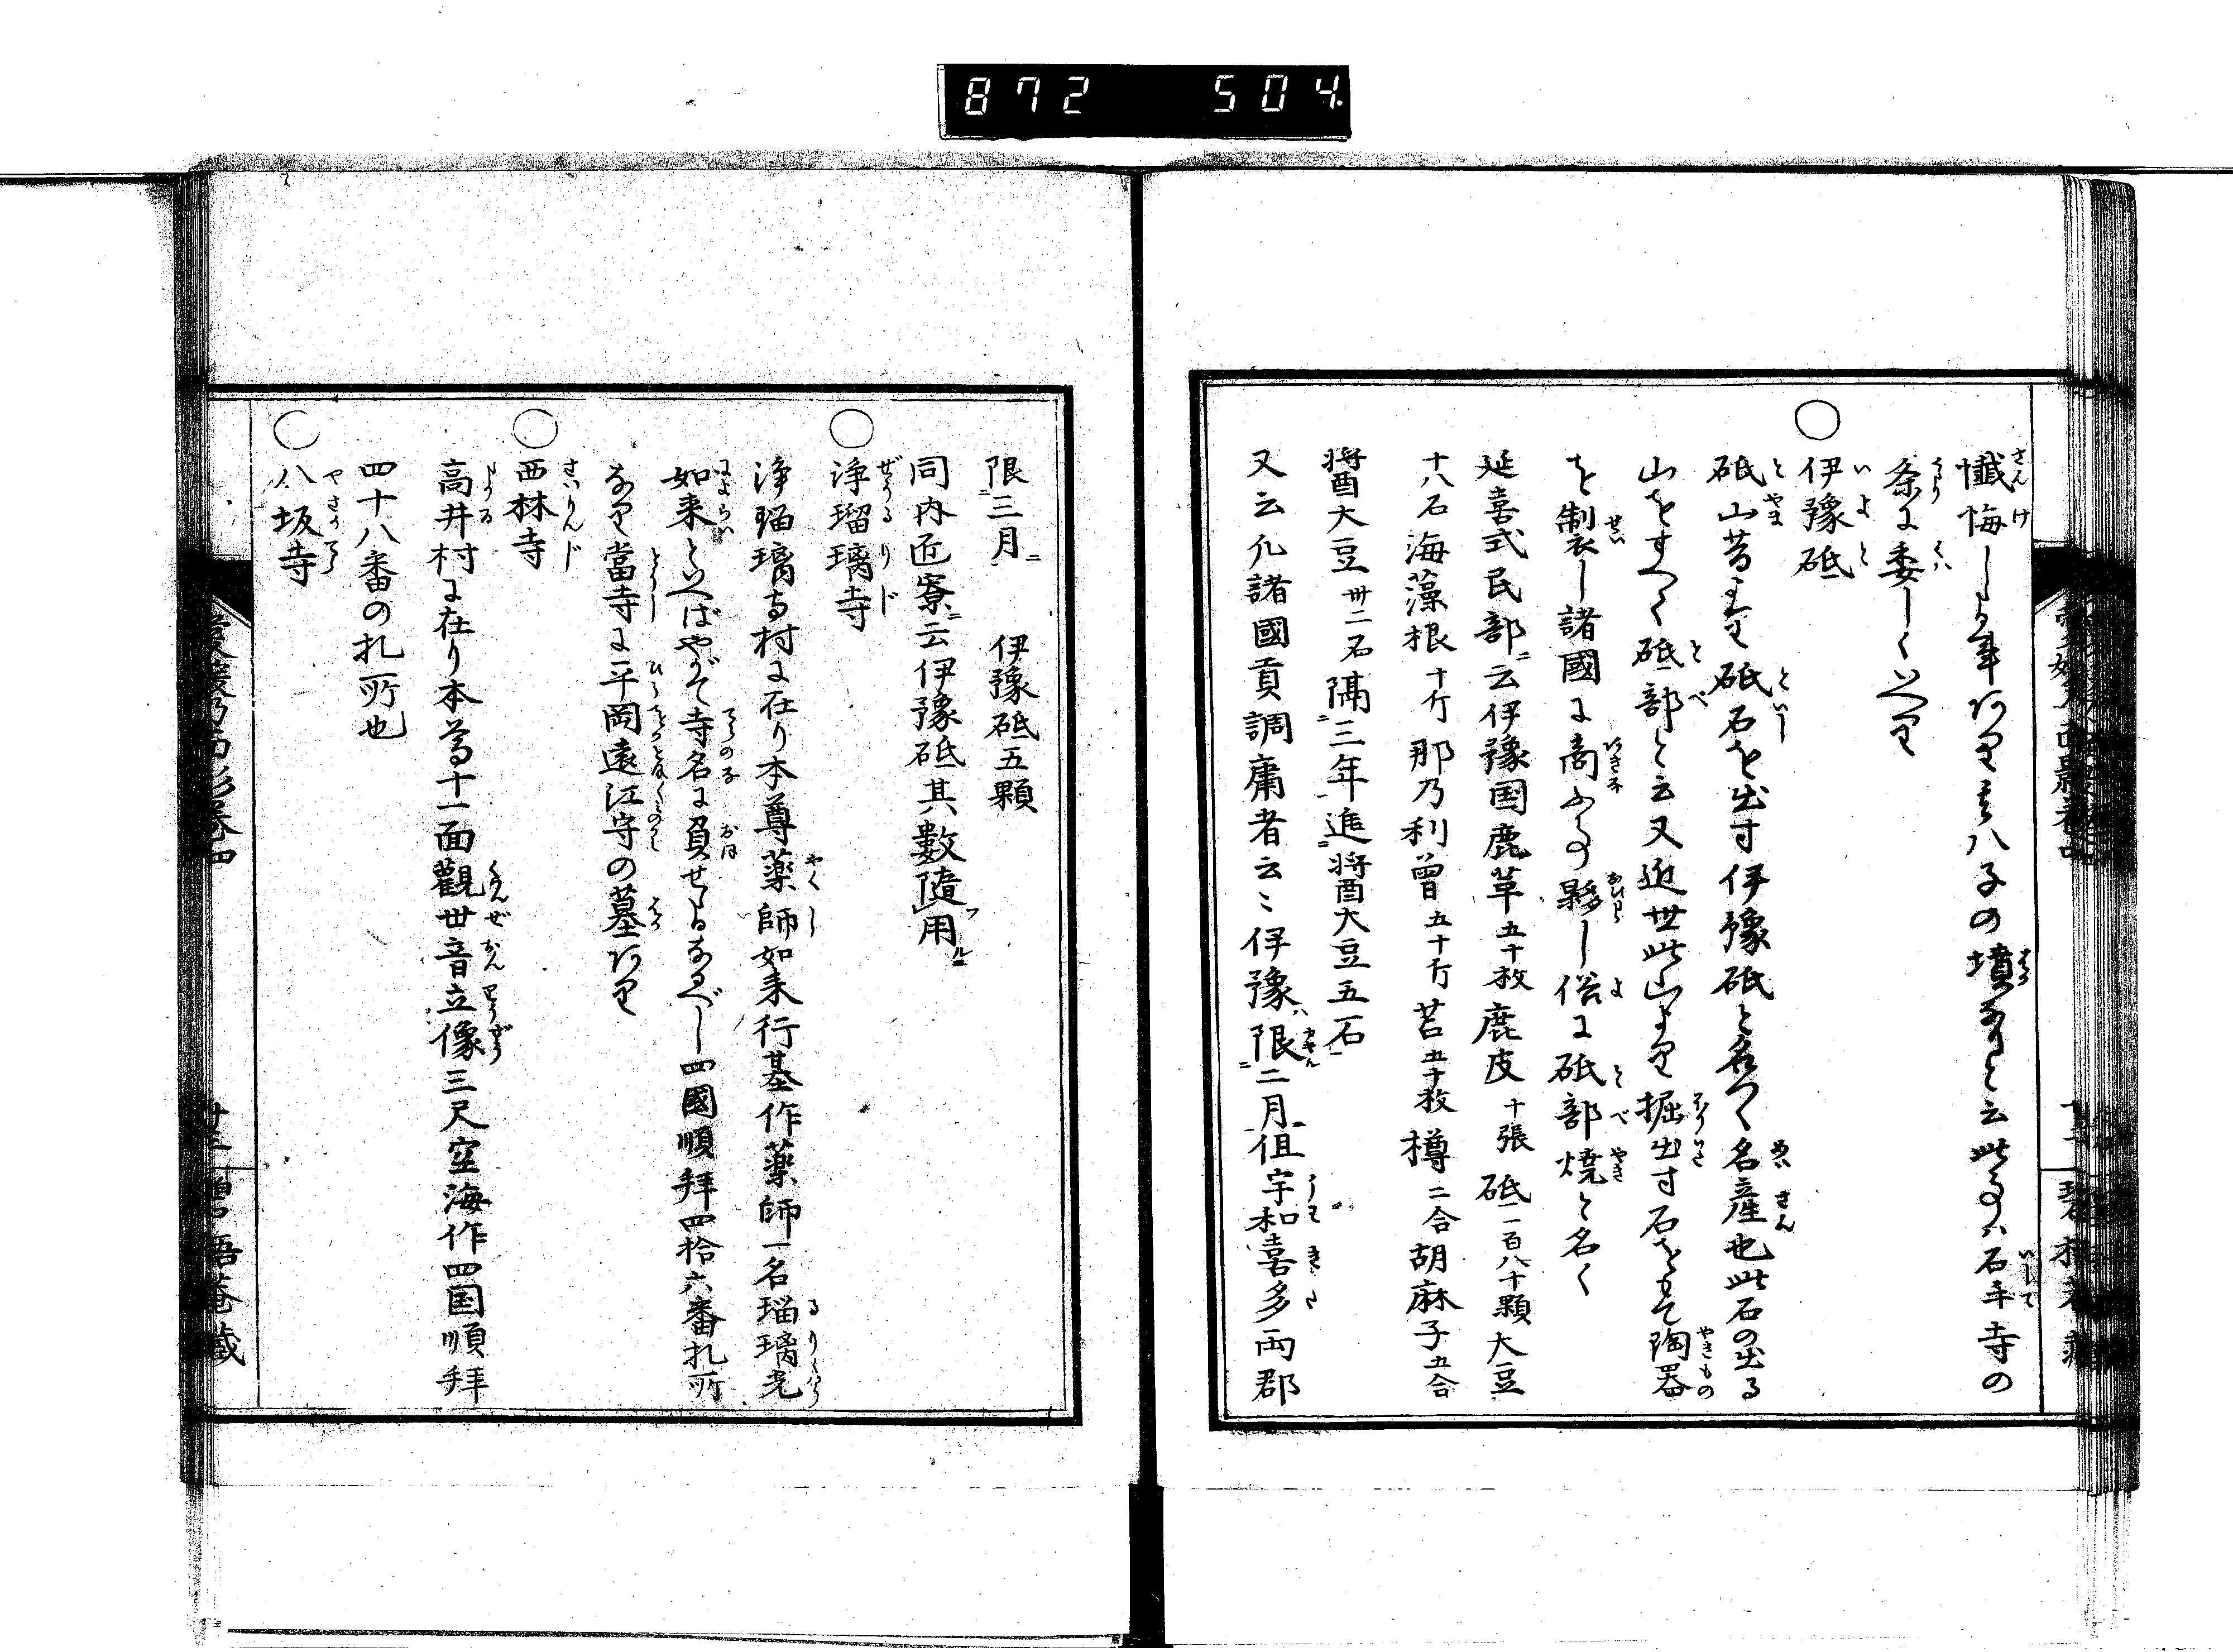 872 504
懺悔しる事ありき八子の墳ありと云此事ハ石手寺の
条に委しくいへり
伊豫砥
砥山昔より砥石を出す伊豫砥と名つく名産也此石の出る
山をすへく砥部と云又近世此山より掘出す石をもて陶器
を製し諸國に商ふ事夥し俗に砥部焼と名く
延喜式民部ニ云伊豫国鹿革五十枚鹿皮十張砥一百八十顆大豆
十八石海藻根十斤那乃利曽五十斤苫五十枚樽二合胡麻子五合
醤大豆卅二石隔三年進醤大豆五石
又云凡諸國貢調庸者云々伊豫ハ限二月但宇和喜多両郡
限三月 伊豫砥五顆
同内匠寮ニ云伊豫砥其數隨用
浄瑠璃寺
浄瑠璃寺村に在り本尊薬師如来行基作薬師一名瑠璃光
如来といへばやがて寺名に負せたるなるべし四國順拜四拾六番札所
なり當寺に平岡遠江守の墓あり
西林寺
高井村に在り本尊十一面觀世音立像三尺空海作四国順拜
四十八番の札所也
八坂寺